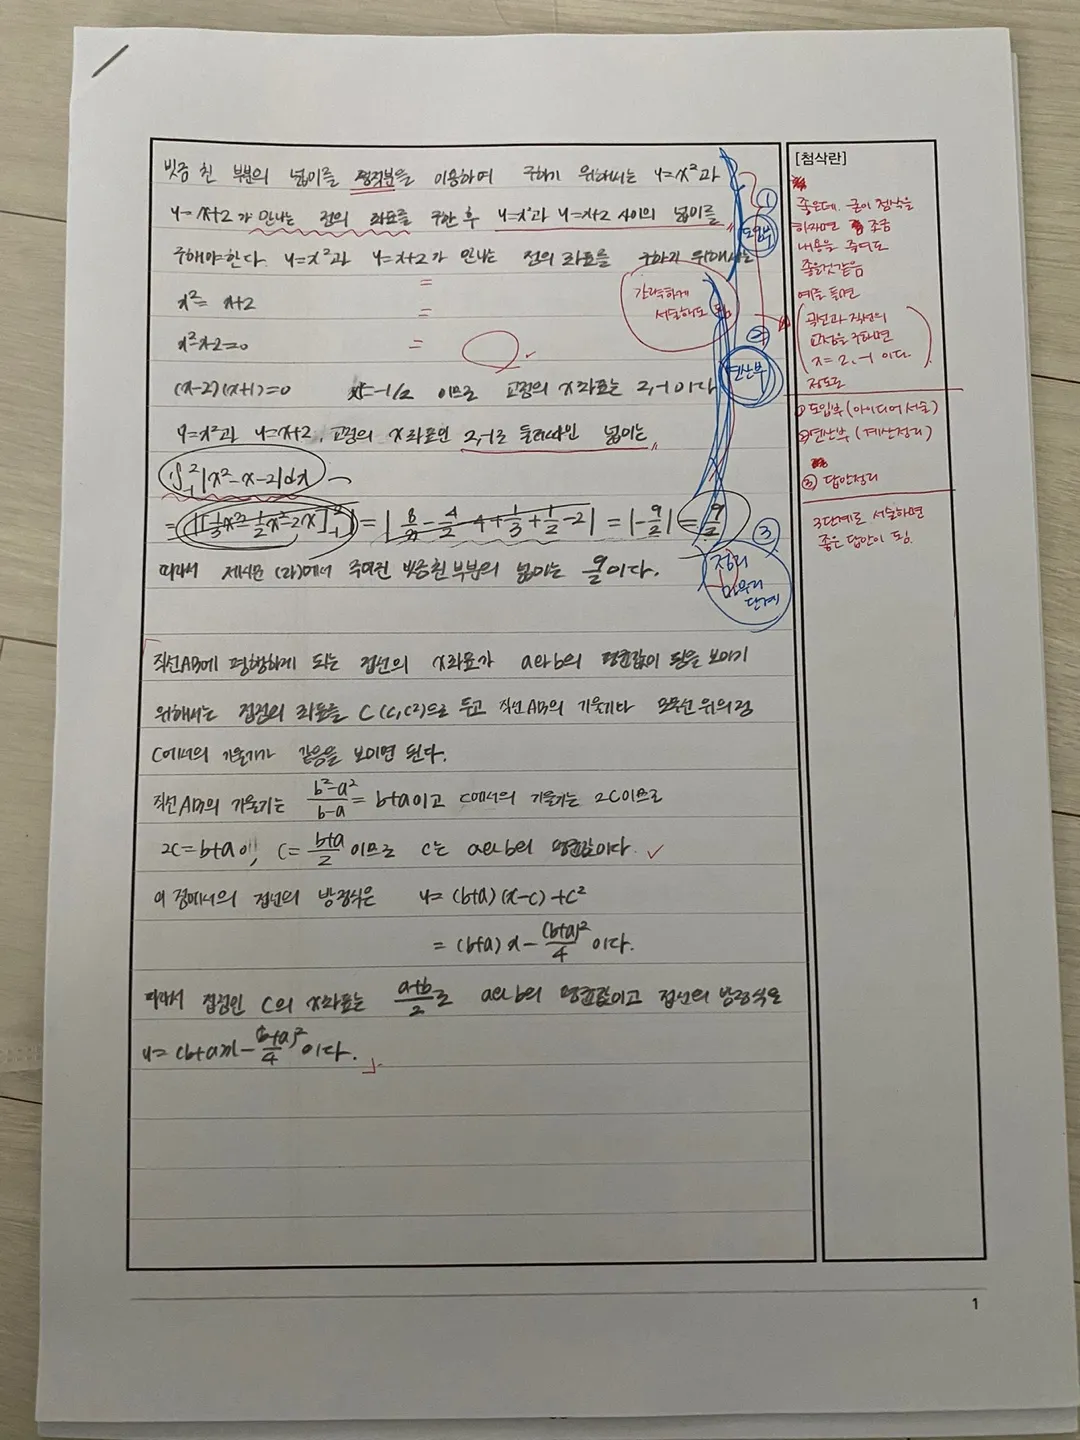 빗금 친 부분의 넓이를 정적분을 이용하여 구하기 위해서는 y=x²과
y=x+2가 만나는 점의 좌표를 구한 후 y=x²과 y=x+2 사이의 넓이를
구해야한다. y=x²과 y=x+2가 만나는 점의 좌표를 구하기 위해서는
x²=x+2
x²-x-2=0
(x-2)(x+1)=0 x=-1/2 이므로 교점의 x좌표는 2,-1이다
y=x²과 y=x+2, 교점의 x좌표인 2,-1로 둘러싸인 넓이는
∫₋₁²|x²-x-2|dx
=|[⅓x³-½x²-2x]₋₁²|=|8/3-4/2-4+1/3+1/2-2|=|-9/2|=9/2
따라서 제시문 (라)에서 주어진 빗금친 부분의 넓이는 9/2이다.
직선AB에 평행하게 되는 접선의 x좌표가 a와 b의 평균값이 됨을 보이기
위해서는 접점의 좌표를 C(c,c²)으로 두고 직선AB의 기울기다 포물선 위의 점
C에서의 기울기가 같음을 보이면 된다.
직선AB의 기울기는 b²-a²/b-a=b+a이고 C에서의 기울기는 2C이므로
2C=b+a이, C=b+a/2이므로 C는 a와 b의 평균값이다.
이 점에서의 접선의 방정식은 y=(b+a)(x-c)+c²
=(b+a)x-(b+a)²/4이다.
따라서 접점인 C의 x좌표는 a+b/2로 a와 b의 평균값이고 접선의 방정식은
y=(b+a)x-(b+a)²/4이다.
간략하게
서술해도 됨
①
도입부
②
연산부
③
정리
마무리
단계
[첨삭란]
좋은데. 굳이 첨삭을
하자면 조금
내용을 줄여도
좋을것같음
예를 들면
곡선과 직선의
교점을 구하면
x=2,-1 이다
정도로
① 도입부 (아이디어 서술)
② 연산부 (계산정리)
③ 답안정리
3단계로 서술하면
좋은 답안이 됨.
1